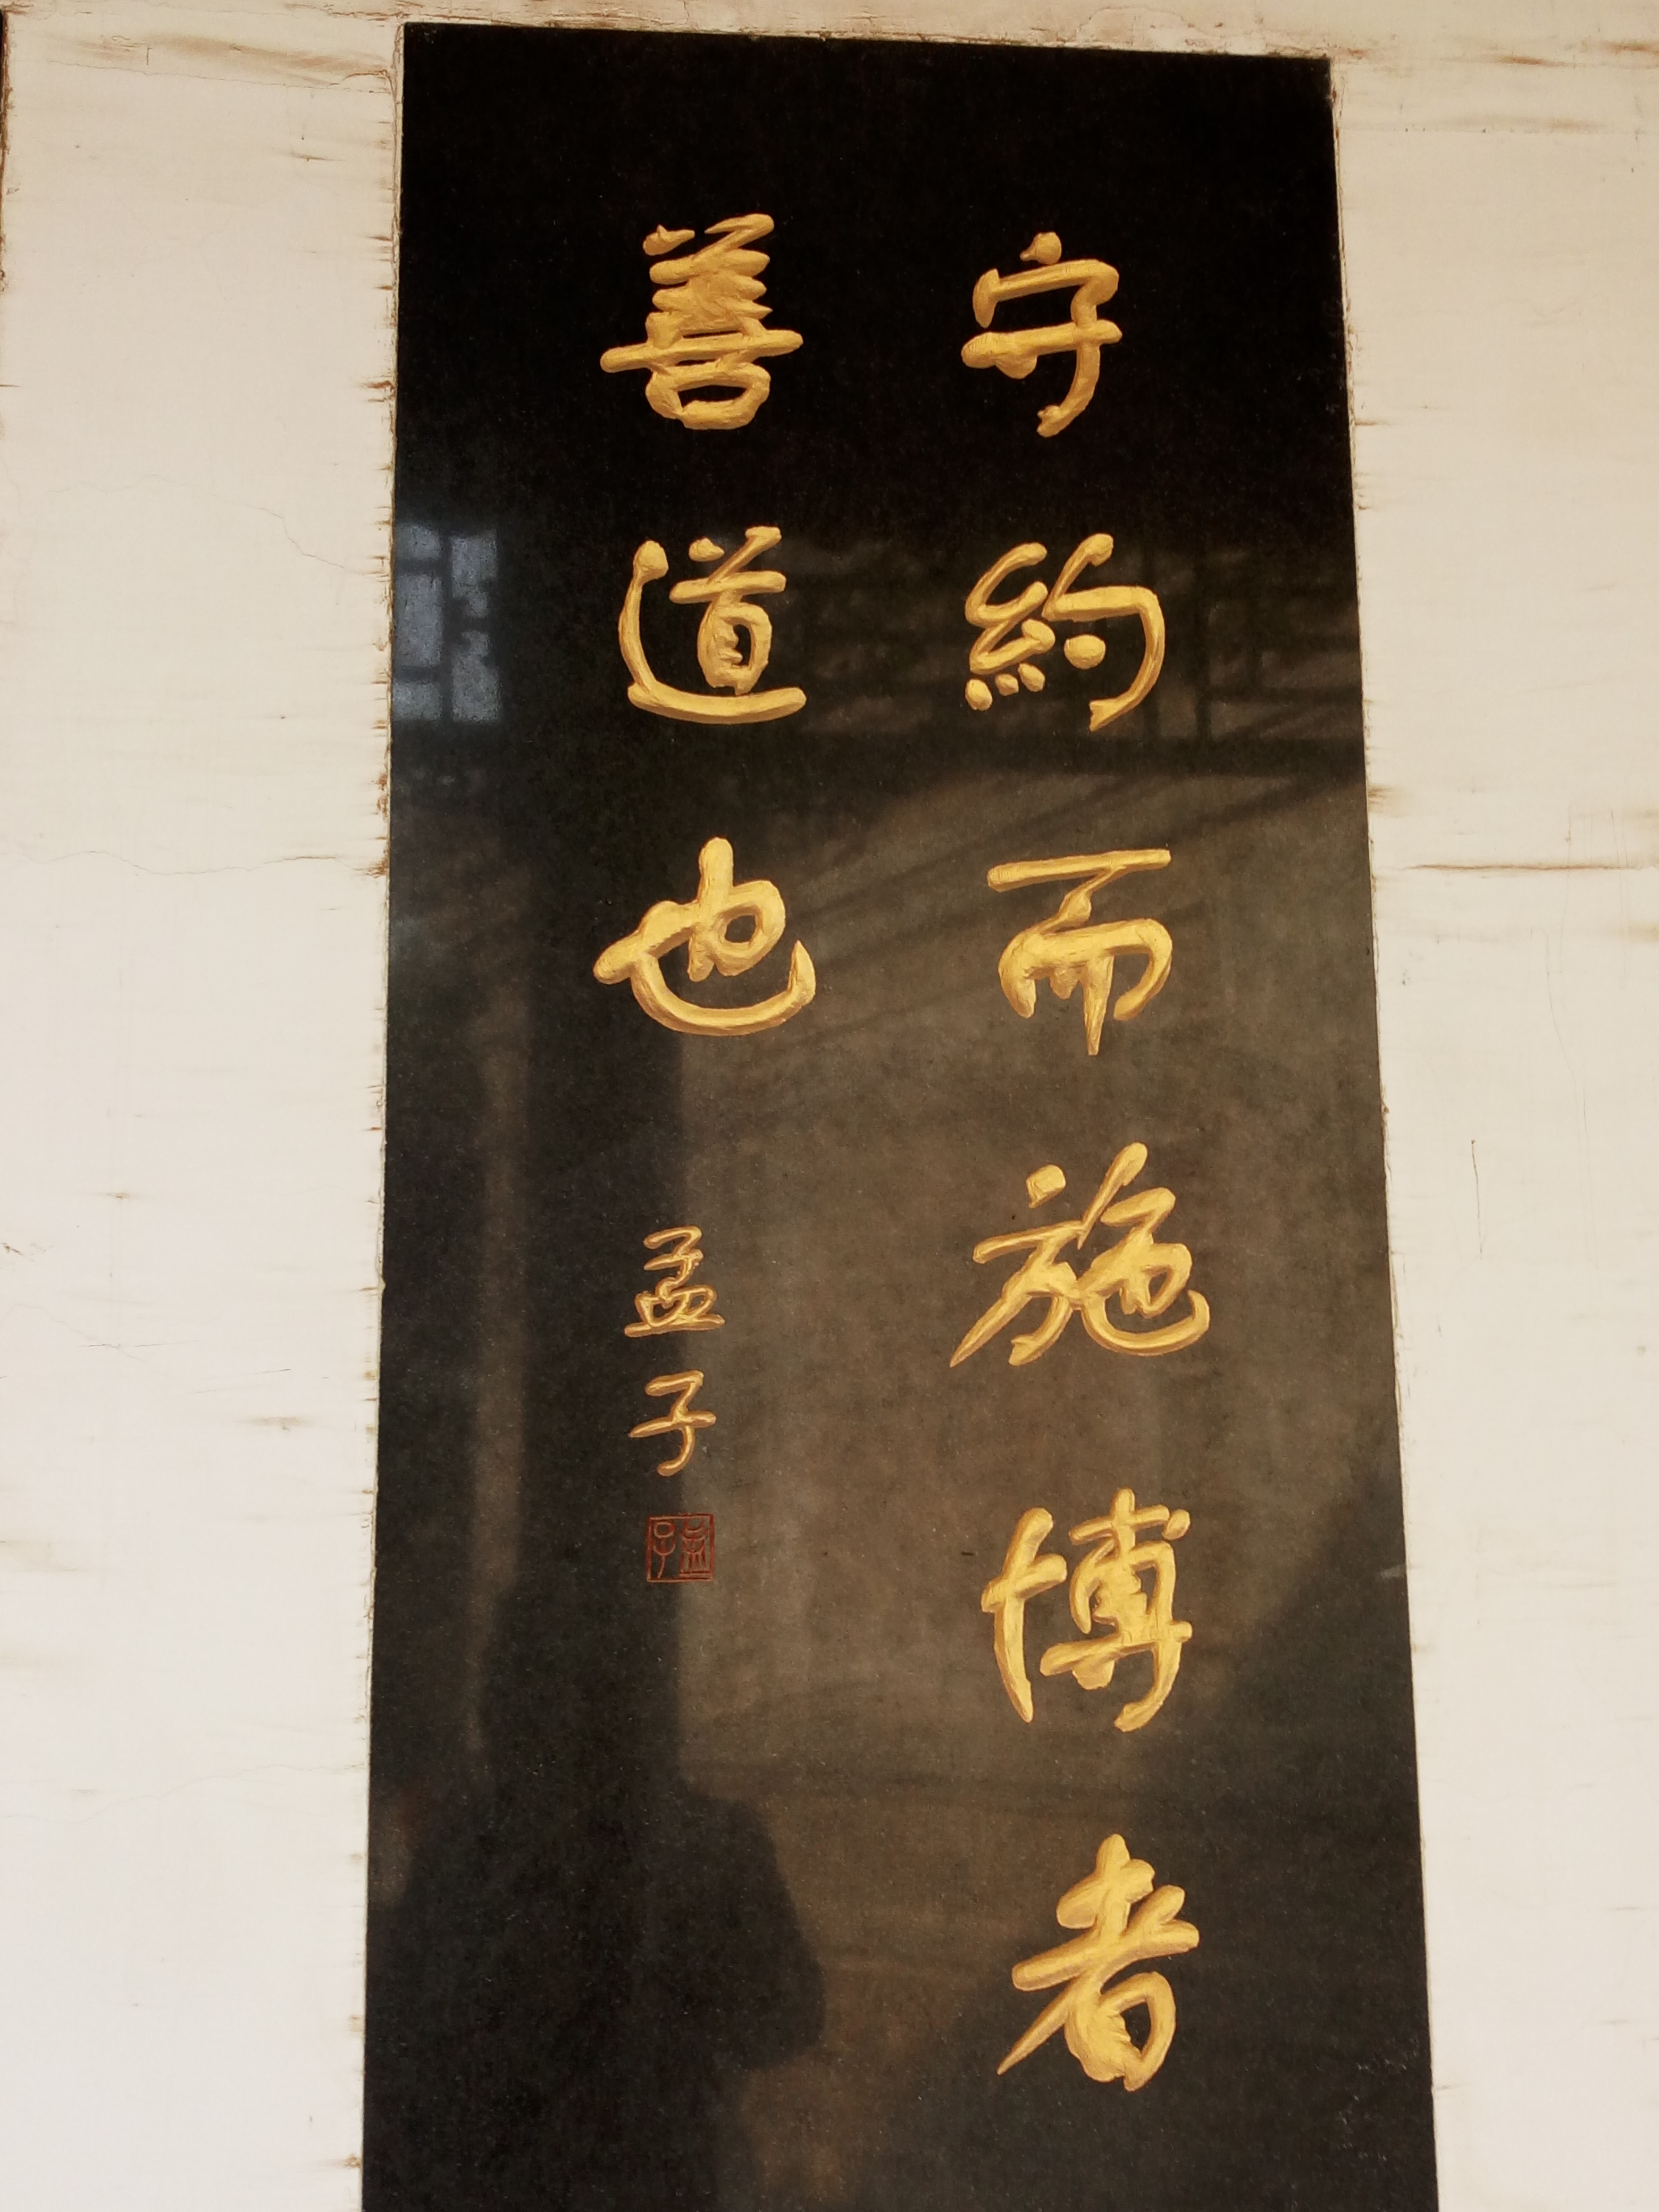 守約而施博者
善道也
孟子
孟子